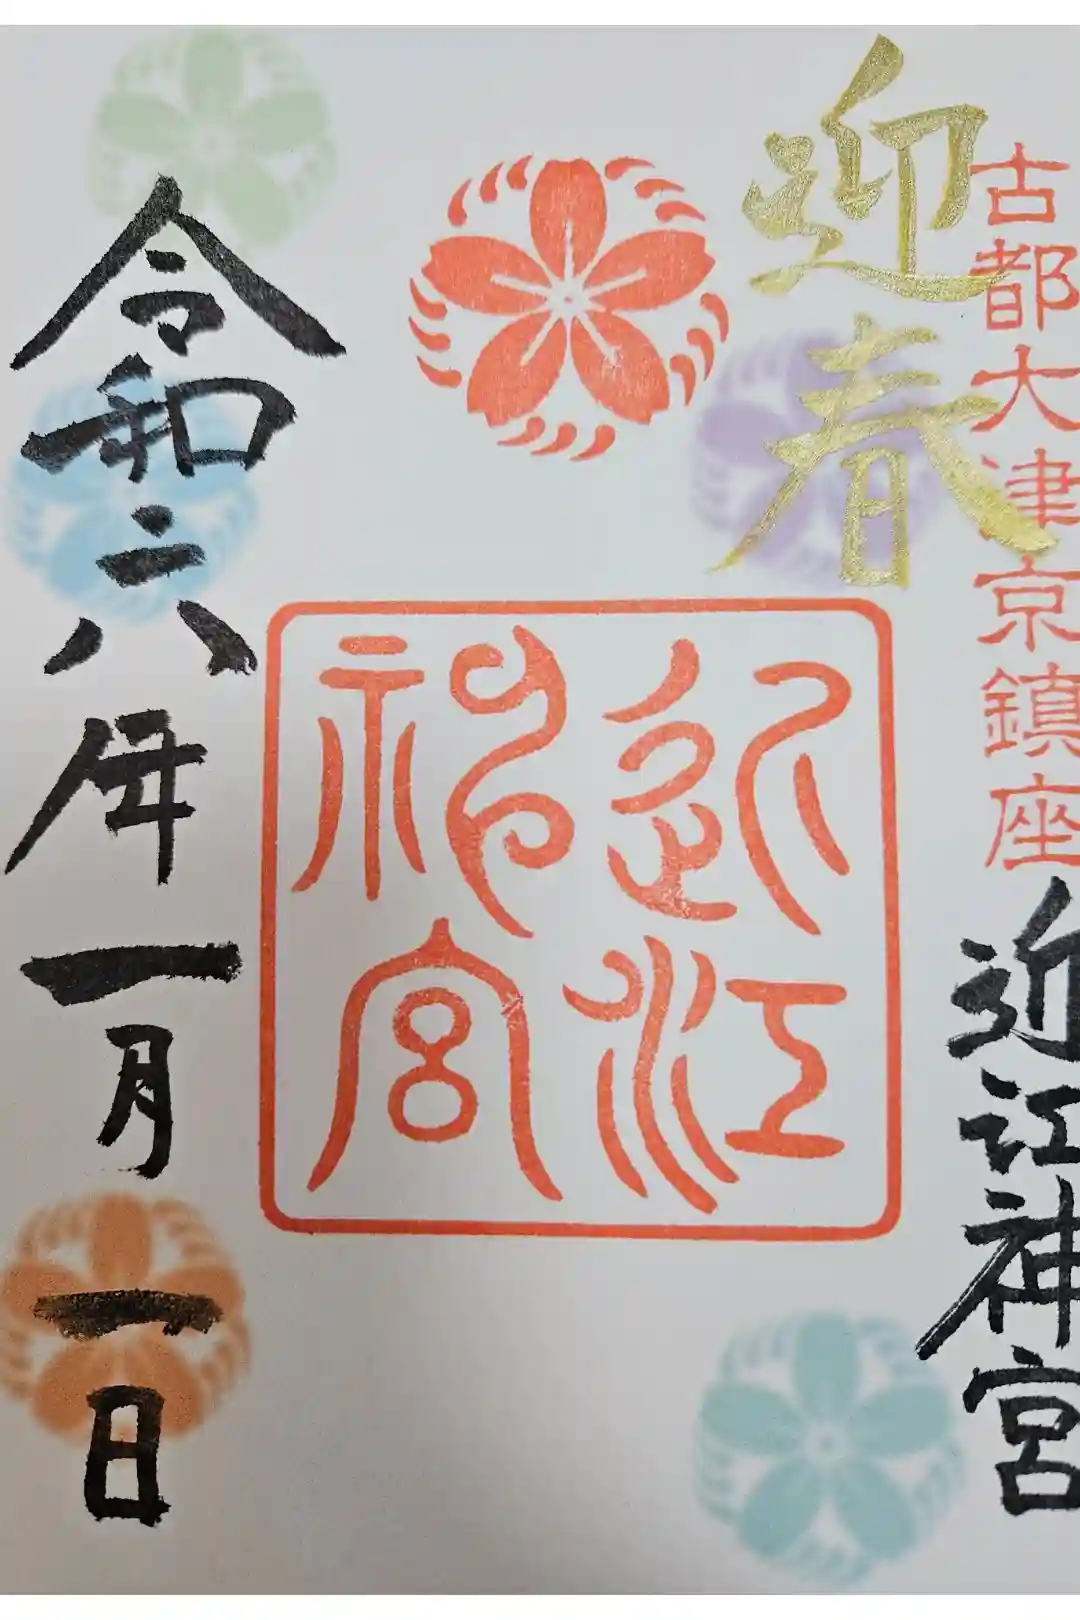 古都大津京鎮座
近江神宮
迎春
近江
神宮
令和六年一月一日